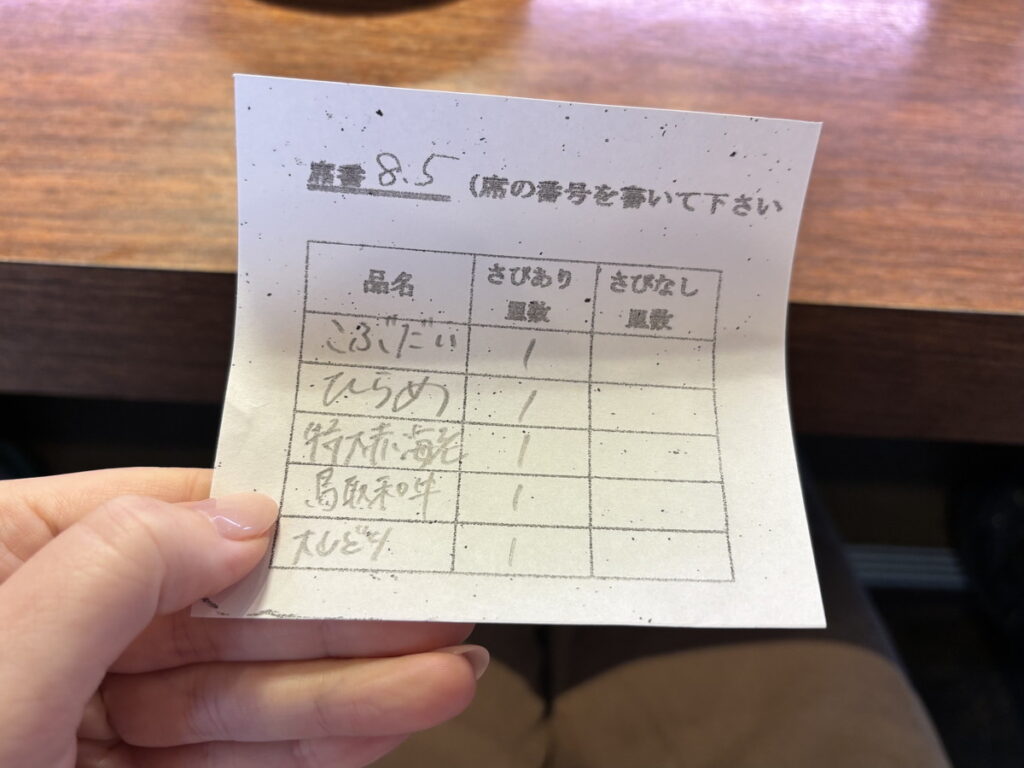 席番 8.5 (席の番号を書いて下さい
品名 さびあり皿数 さびなし皿数
こぶだい 1
ひらめ 1
特大赤海老 1
鳥取和牛 1
大とり 1